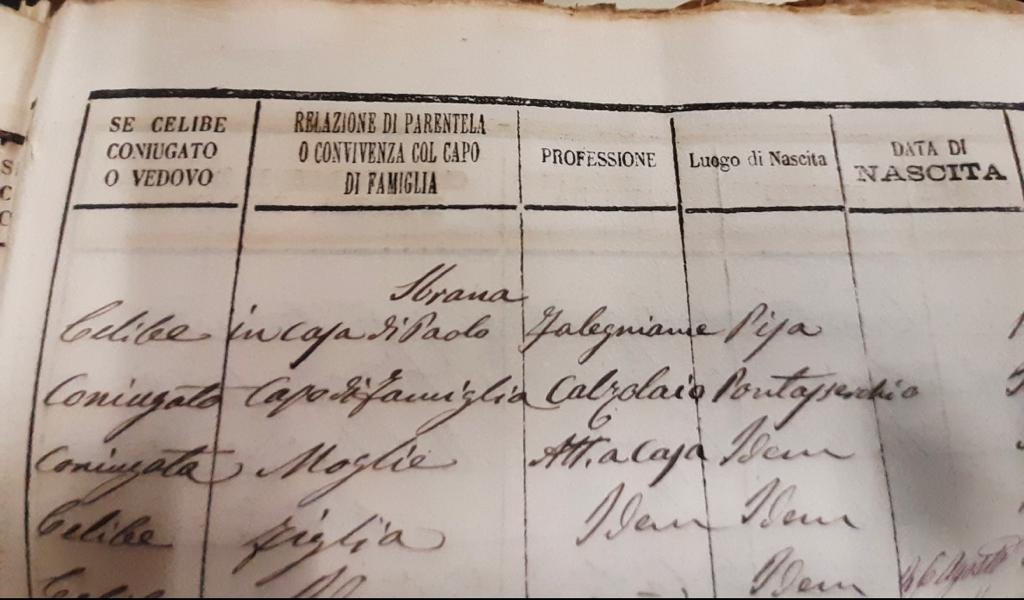 SE CELIBE
CONIUGATO
O VEDOVO
RELAZIONE DI PARENTELA
O CONVIVENZA COL CAPO
DI FAMIGLIA
PROFESSIONE
Luogo di Nascita
DATA DI
NASCITA
Sbrana
Celibe in casa di Paolo Falegniame Pisa
Coniugato Capo di famiglia Calzolaio Pontasserchio
Coniugata Moglie Att. a casa Idem
Celibe figlia Idem Idem
Celibe Idem Agosto